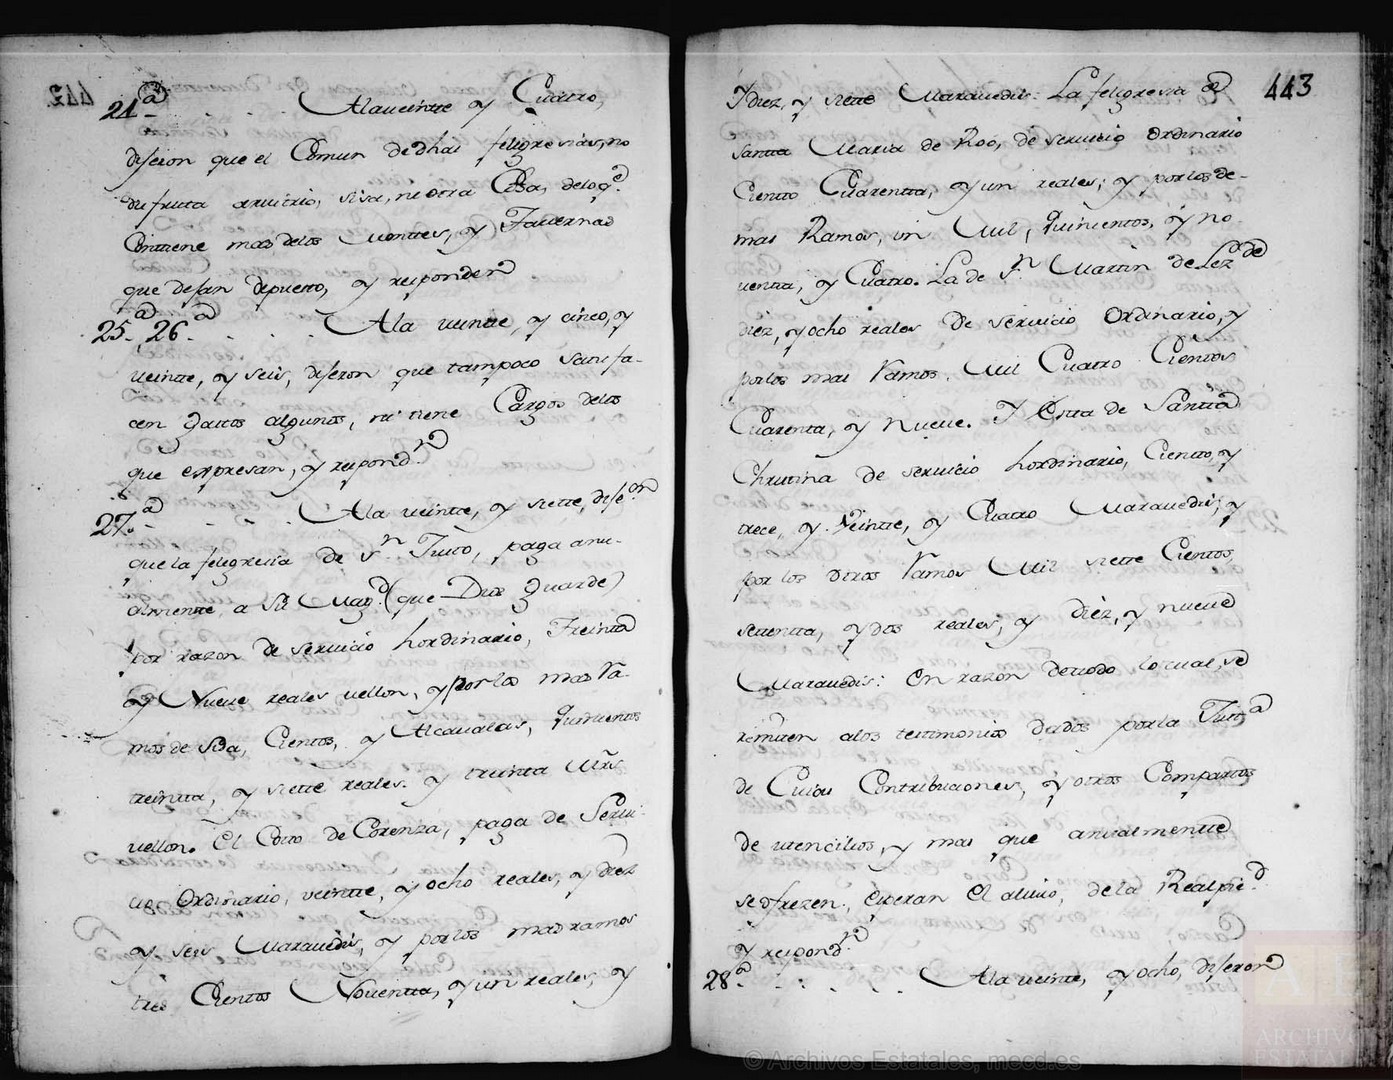 24ª . . . . A la veintte y Cuatro,
dijeron que el Comun de dhas feligresias, no
disfrutta arvitrio, sisa, ni otra Cosa, de lo q.e
Conttiene mas de los Monttes, y Tavernas
que dejan depuesto, y responden
25ª 26ª . . . . A la veintte, y cinco, y
veintte, y seis, dijeron que tampoco satisfa-
cen gastos algunos, ni tiene Cargos delos
que expresan, y respond.n
27ª . . . . A la veintte, y siette, dijeron
que la feligresia de S.n Justo, paga anu-
almente a Su Mag.d (que Dios Guarde)
por razon de servicio hordinario, Treinta
y Nueve reales vellon, y por los mas Ra-
mos de sisa, Cientos, y Alcavalas, quinientos
treintta, y siette reales. y treinta Mrs
vellon. El Cotto de Corenza, paga de Servi-
cio Ordinario, veintte, y ocho reales, y diez
y seis Maravedis, y por los mas ramos
tres Cientos Noventta, y un reales, y
443
Y diez, y siette Maravedis: La feligresia de
Santta Maria de Roo, de servicio Ordinario
Ciento Cuarentta, y un reales; y por los de-
mas Ramos, un Mil, quinientos, y no
ventta, y Cuatro. La de S.n Martin de Lez.de
diez, y ocho reales de servicio Ordinario, y
por los mas Ramos. Mil Cuatro Cientos
Cuarenta, y Nueve. Y Esta de Santta
Christina de servicio hordinario, Ciento, y
trece, y Veintte, y Cuatro Maravedis; y
por los otros Ramos Mil siette Cientos
settentta, y dos reales, y diez, y nueve
Maravedis: En razon de ttodo lo cual, se
remiten a los testimonios dados por la Justt.a
de Cuias Contribuciones, y otros Compartos
de utencilios, y mas que anualmentte
se ofrezen, Esperan El alivio, de la Real pie.d
y respond.n
28ª . . . . . A la veintte, y ocho, dijeron
© Archivos Estatales, mecd.es
ARCHIVOS
ESTATALES